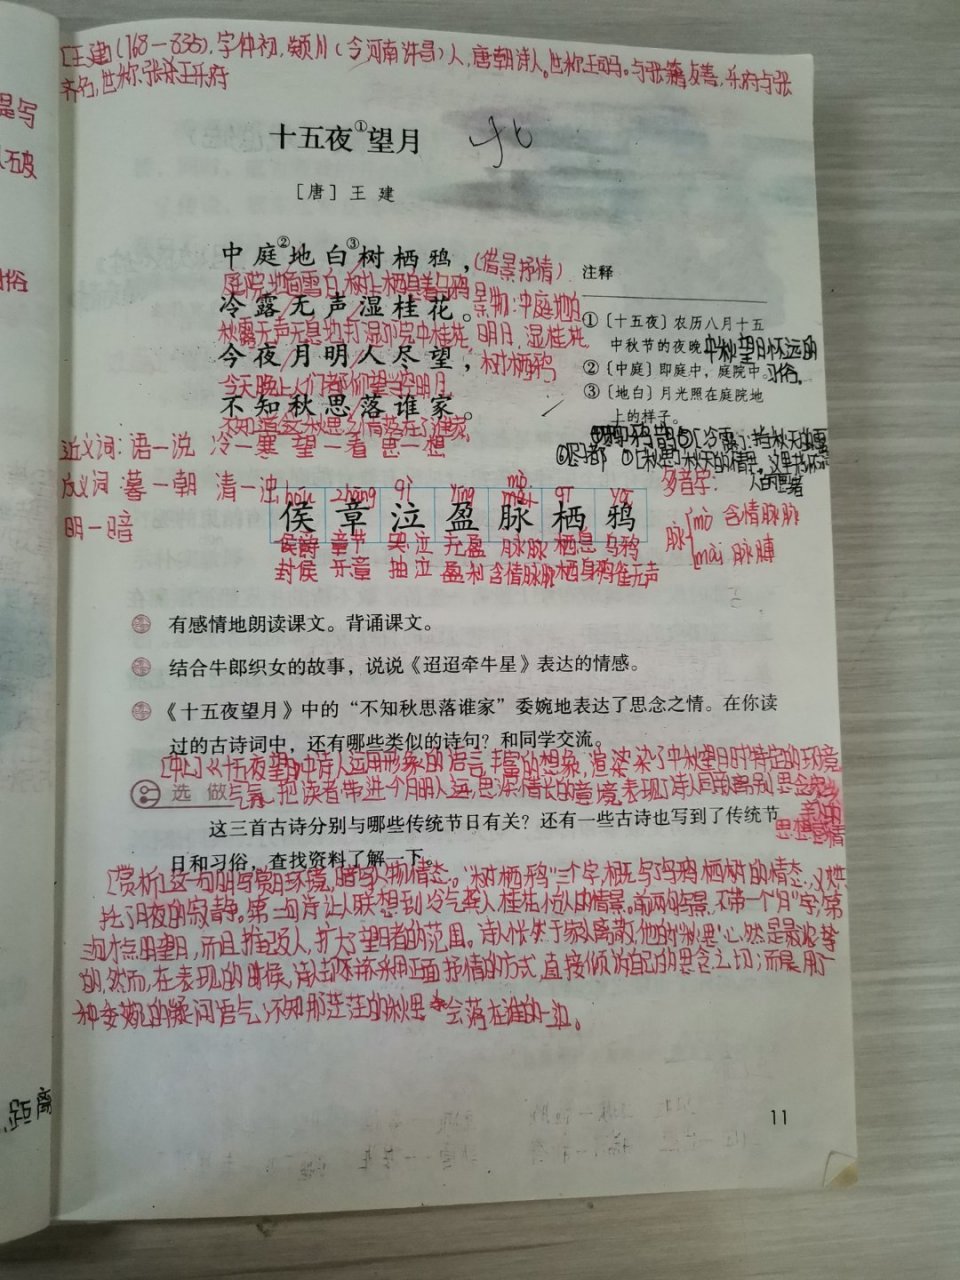 [王建](768-835),字仲初,颍川(今河南许昌)人,唐朝诗人。世称王司马。与张籍友善,乐府与张
齐名,世称张王乐府
十五夜①望月
[唐] 王 建
中庭②地白③树栖鸦,(借景抒情)
庭院地面雪白,树上栖息着乌鸦
冷露无声湿桂花。景物:中庭地白
秋露无声无息地打湿了院中桂花 明月,湿桂花
今夜月明人尽望,树栖鸦
今天晚上人们都仰望当空明月
不知秋思落谁家。
不知道这秋思之情落在了谁家
注释
①〔十五夜〕农历八月十五
中秋节的夜晚 中秋望月怀远的
②〔中庭〕即庭中,庭院中。习俗。
③〔地白〕月光照在庭院地
上的样子。
近义词:语一说 冷一寒 望一看 思一想
反义词:暮一朝 清一浊
明一暗
hóu zhāng qì yíng mò mài qī yā
侯 章 泣 盈 脉 栖 鸦
侯爵 章节 哭泣 无盈 脉脉 栖息 乌鸦
封侯 乐章 抽泣 盈利 含情脉脉 栖身 鸦雀无声
多音字:
脉{mò 含情脉脉
mài 脉搏
有感情地朗读课文。背诵课文。
结合牛郎织女的故事,说说《迢迢牵牛星》表达的情感。
《十五夜望月》中的“不知秋思落谁家”委婉地表达了思念之情。在你读
过的古诗词中,还有哪些类似的诗句?和同学交流。
[中心]《十五夜望月》中诗人运用形象的语言,丰富的想象,渲染了中秋望月时特定的环境
气氛,把读者带进一个月明人远,思深情长的意境,表现了诗人同友离别思念家乡
亲人的
思想感情
选 做
这三首古诗分别与哪些传统节日有关?还有一些古诗也写到了传统节
日和习俗,查找资料了解一下。
[赏析]这一句明写赏月环境,暗写人物情态。“树栖鸦”三个字,概写了乌鸦栖树的情态,又烘
托了月夜的寂静。第二句诗让人联想到冷气袭人桂花怡人的情景。前两句写景,不带一个“月”字;第
三句才点明望月,而且推己及人,扩大了望月者的范围。诗人怅然于家人离散,他的“秋思”心然是最浓挚
的,然而,在表现的时候,诗人却不采用正面抒情的方式,直接倾诉自己的思念之切;而是用了一
种委婉的疑问语气:不知那茫茫的秋思会落在谁的一边。
距离
11